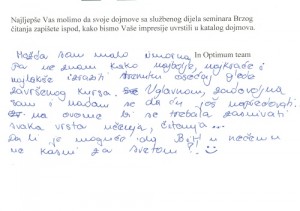 Najljepše Vas molimo da svoje dojmove sa službenog dijela seminara Brzog
čitanja zapišete ispod, kako bismo Vaše impresije uvrstili u katalog dojmova.
In Optimum team
Možda sam malo umorna
Pa ne znam kako najbolje, najkraće i
najlakše izraziti trenutni osjećaj glede
završenog kursa. Uglavnom, zadovoljna
sam i nadam se da ću još napredovati.
na ovome bi se trebala zasnivati
svaka vrsta učenja, čitanja...
da li je moguće da Bit! u nečemu
ne kasni za svetom?!